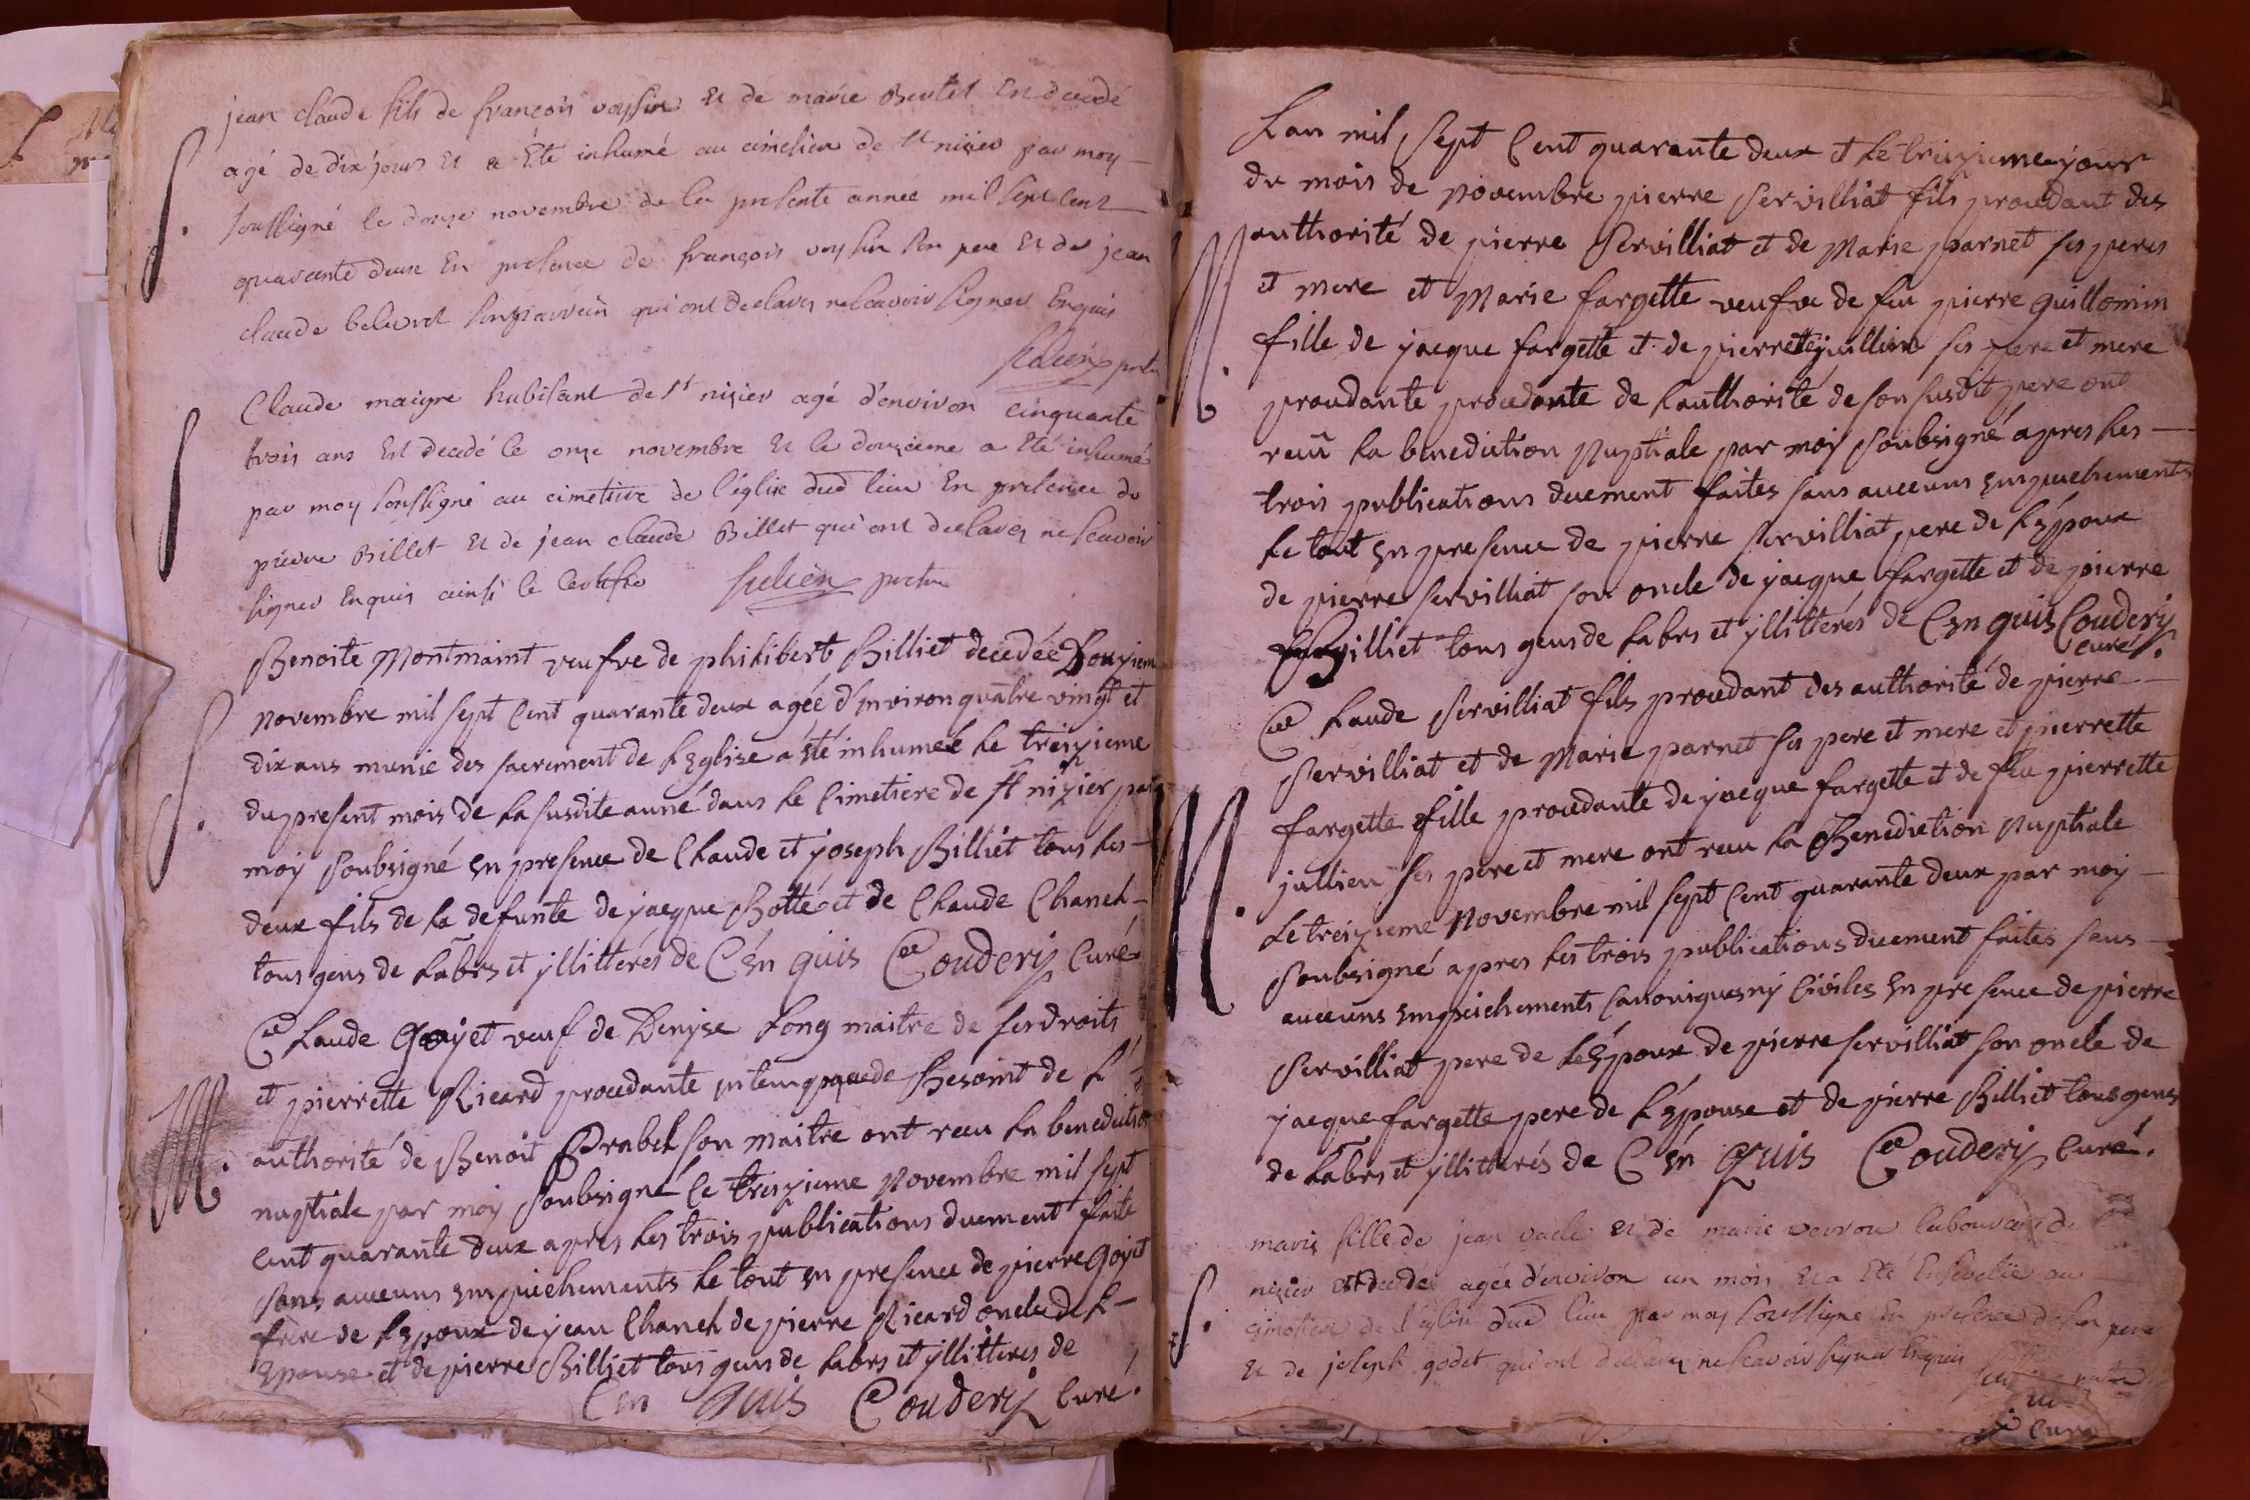 jean claude fils de françois voysin et de marie Bertet Est decedé
agé de dix jours et a Eté inhumé au cimetiere de st nizier par moy
soussigné le douze novembre de la presente année mil sept cent
quarante deux En presence de françois voysin son pere et de jean
claude son parrein qui ont declarez ne scavoir signer Enquis
Claude maigre habitant de st nizier agé d'environ cinquante
trois ans Est decedé le onze novembre et le douzieme a Eté inhumé
par moy soussigné au cimetiere de l'église dud lieu En presence de
pierre Billet et de jean claude Billet qui ont declarez ne scavoir
signer Enquis ainsi le Certifie
Benoite Montmaint veufve de philibert Billiet decedée Douzieme
novembre mil sept Cent quarante deux agée d'environ quatre vingt et
dix ans munie des sacrement de L'Eglise a été inhumée Le treizieme
du present mois de La susdite anné dans Le Cimetiere de st nizier par
moy soubsigné En presence de Claude et joseph Billiet tous les
deux fils de La defunte de jacque Botte et de Claude Chanel
tous gens de Labrs et yllittérés de C En quis Coudery Curé
Claude Goyet veuf de Denyse Long maitre de ses droits
et pierrette Ricard procedante de L'
authorité de Benoit Prabel son maitre ont receu La benediction
nuptiale par moy soubsigné Le treizieme Novembre mil sept
cent quarante deux apres Les trois publications duement faite
sans aucuns Empechements Le tout En presence de pierre Goyet
frere de L'Epoux de jean Chanel de pierre Ricard oncle de L
Epouse et de pierre Billiet tous gens de Labrs et yllitteres de
C En quis Coudery Curé
Lan mil sept Cent quarante deux et Le treizieme jour
du mois de Novembre pierre servilliat fils procedant des
authorité de pierre servilliat et de Marie parnet ses peres
et mere et Marie fargette veufve de feu pierre Guillomin
fille de jacque fargette et de pierrette jullien ses pere et mere
procedante procedante de Lauthorité de son susdit pere ont
receu La benediction Nuptiale par moy soubsigné apres Les
trois publications duement faites sans aucuns Empechements
Le tout En presence de pierre servilliat pere de L'Epoux
de pierre servilliat son oncle de jacque fargette et de pierre
Billiet tous gens de Labrs et yllittérés de C En quis Coudery
curé
Claude servilliat fils procedant des authorité de pierre
servilliat et de Marie parnet ses pere et mere et pierrette
fargette fille procedante de jacque fargette et de feu pierrette
jullien ses pere et mere ont receu La Benediction Nuptiale
Le treizieme Novembre mil sept Cent quarante deux par moy
soubsigné apres Les trois publications duement faites sans
aucuns Empeichements Canoniques ny Civiles En presence de pierre
servilliat pere de L'Epoux de pierre servilliat son oncle de
jacque fargette pere de L'Epouse et de pierre Billiet tous gens
de Labrs et yllitterés de C En Quis Coudery Curé
marie fille de jean et de marie laboureur de
nizier est decedée agée d'environ un mois et a Eté Ensevelie au
cimetiere de l'église dud lieu par moy soussigné En presence de son pere
et de joseph godet qui ont declarez ne scavoir signer Enquis
curé